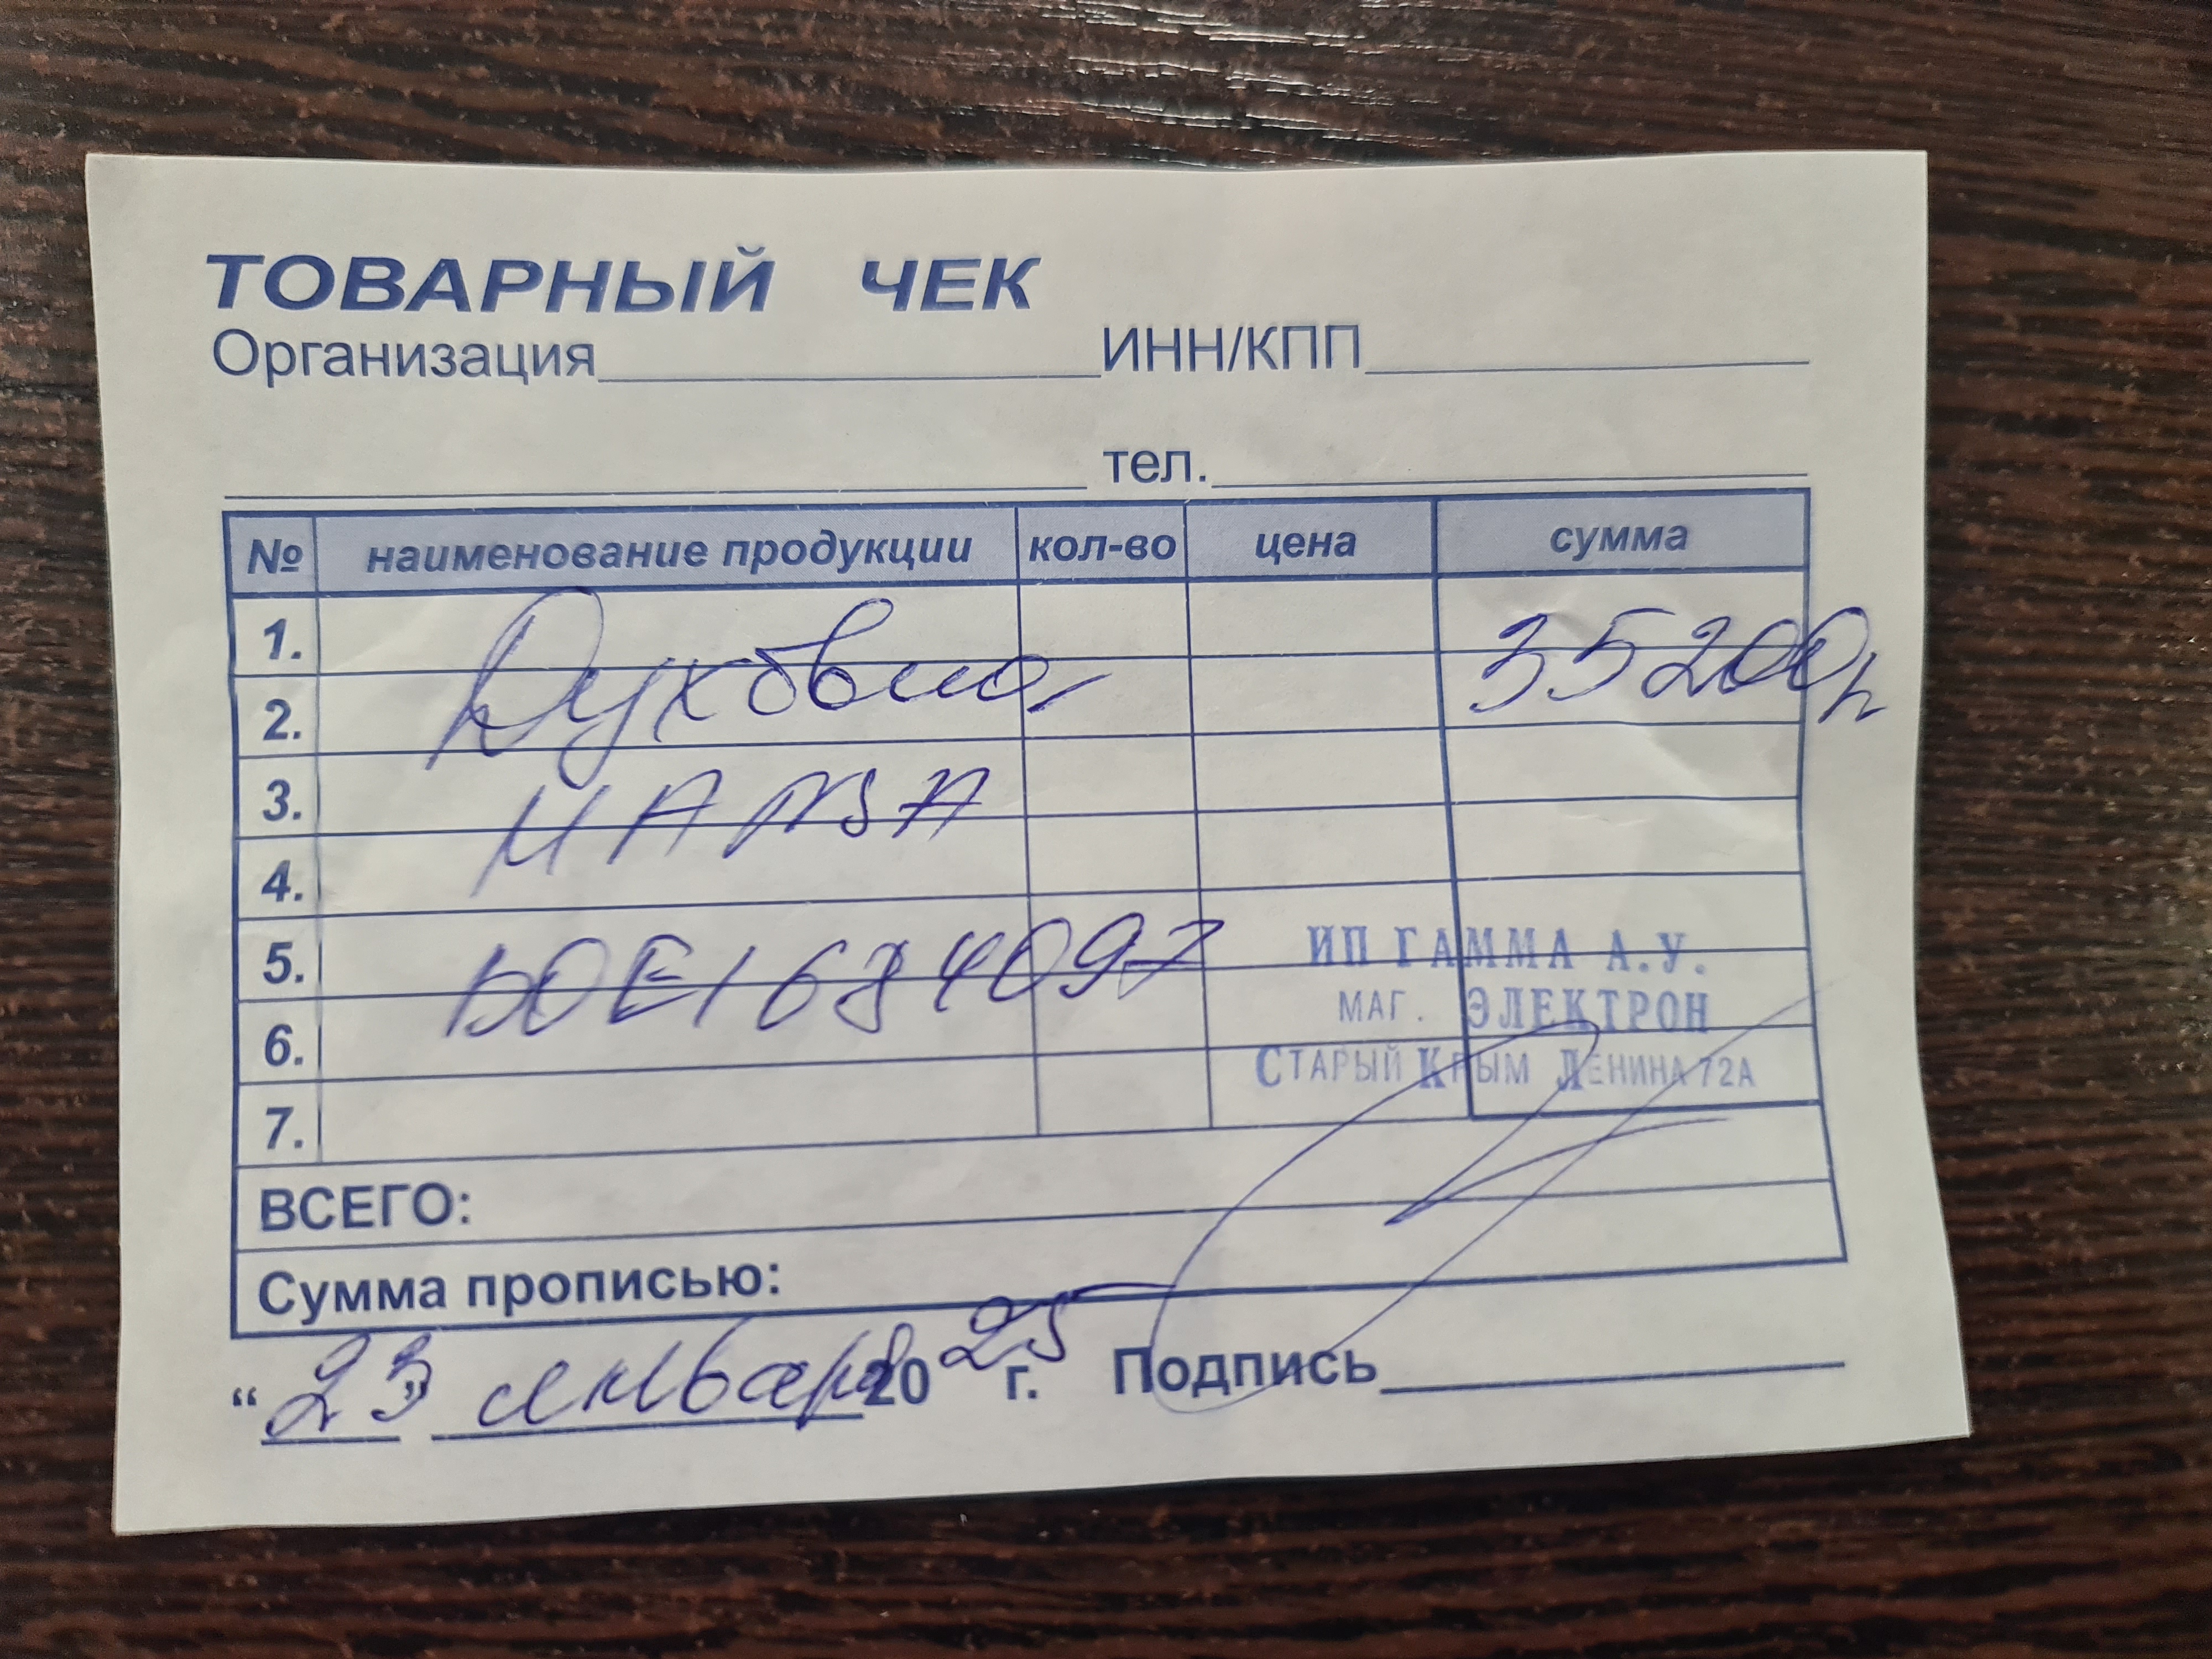 ТОВАРНЫЙ ЧЕК
Организация ИНН/КПП
тел.
№ наименование продукции кол-во цена сумма
1. Духовка 35200р
2.
3. HANSA
4.
5. BOEI684097
6.
7.
ИП ГАММА А.У.
МАГ. ЭЛЕКТРОН
СТАРЫЙ КРЫМ ЛЕНИНА 72А
ВСЕГО:
Сумма прописью:
“23” января 2025 г. Подпись